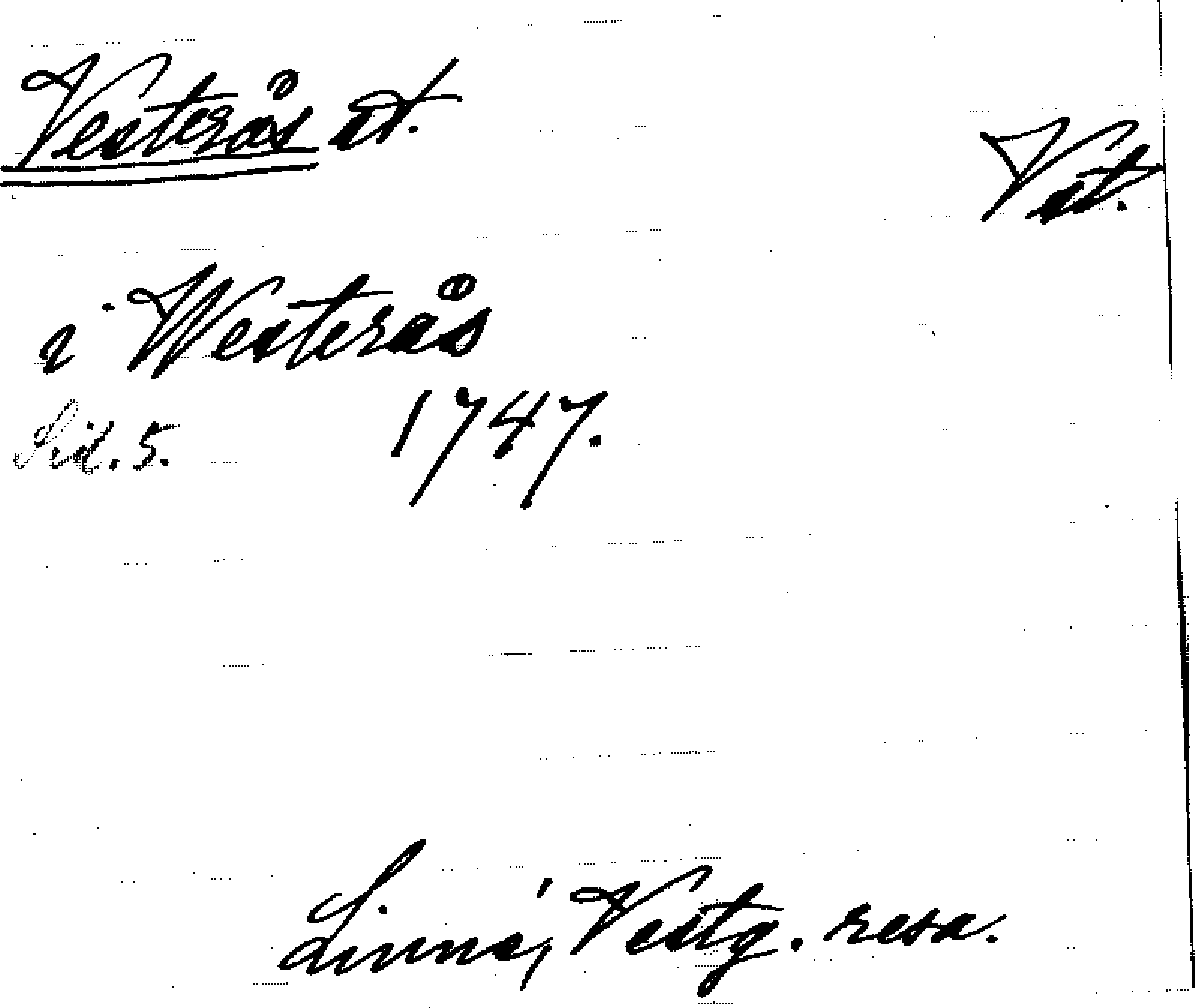 Vesterås st.
Vst.
i Westerås
Sid. 5. 1747.
Linné, Vestg. resa.